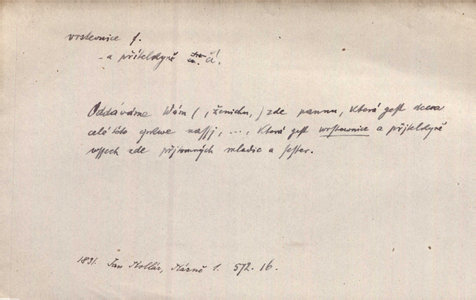 vrstevnice f.
- a přítelkyně
Oddáváme Wám (, ženichu,) zde pannu, která gest dcera
celé této cyrkwe nassj, ..., která gest wrstewnice a přjtelkyně
wssech zde přjtomných mladic a sester.
1831. Jan Kollár, Kázně 1. 572. 16.